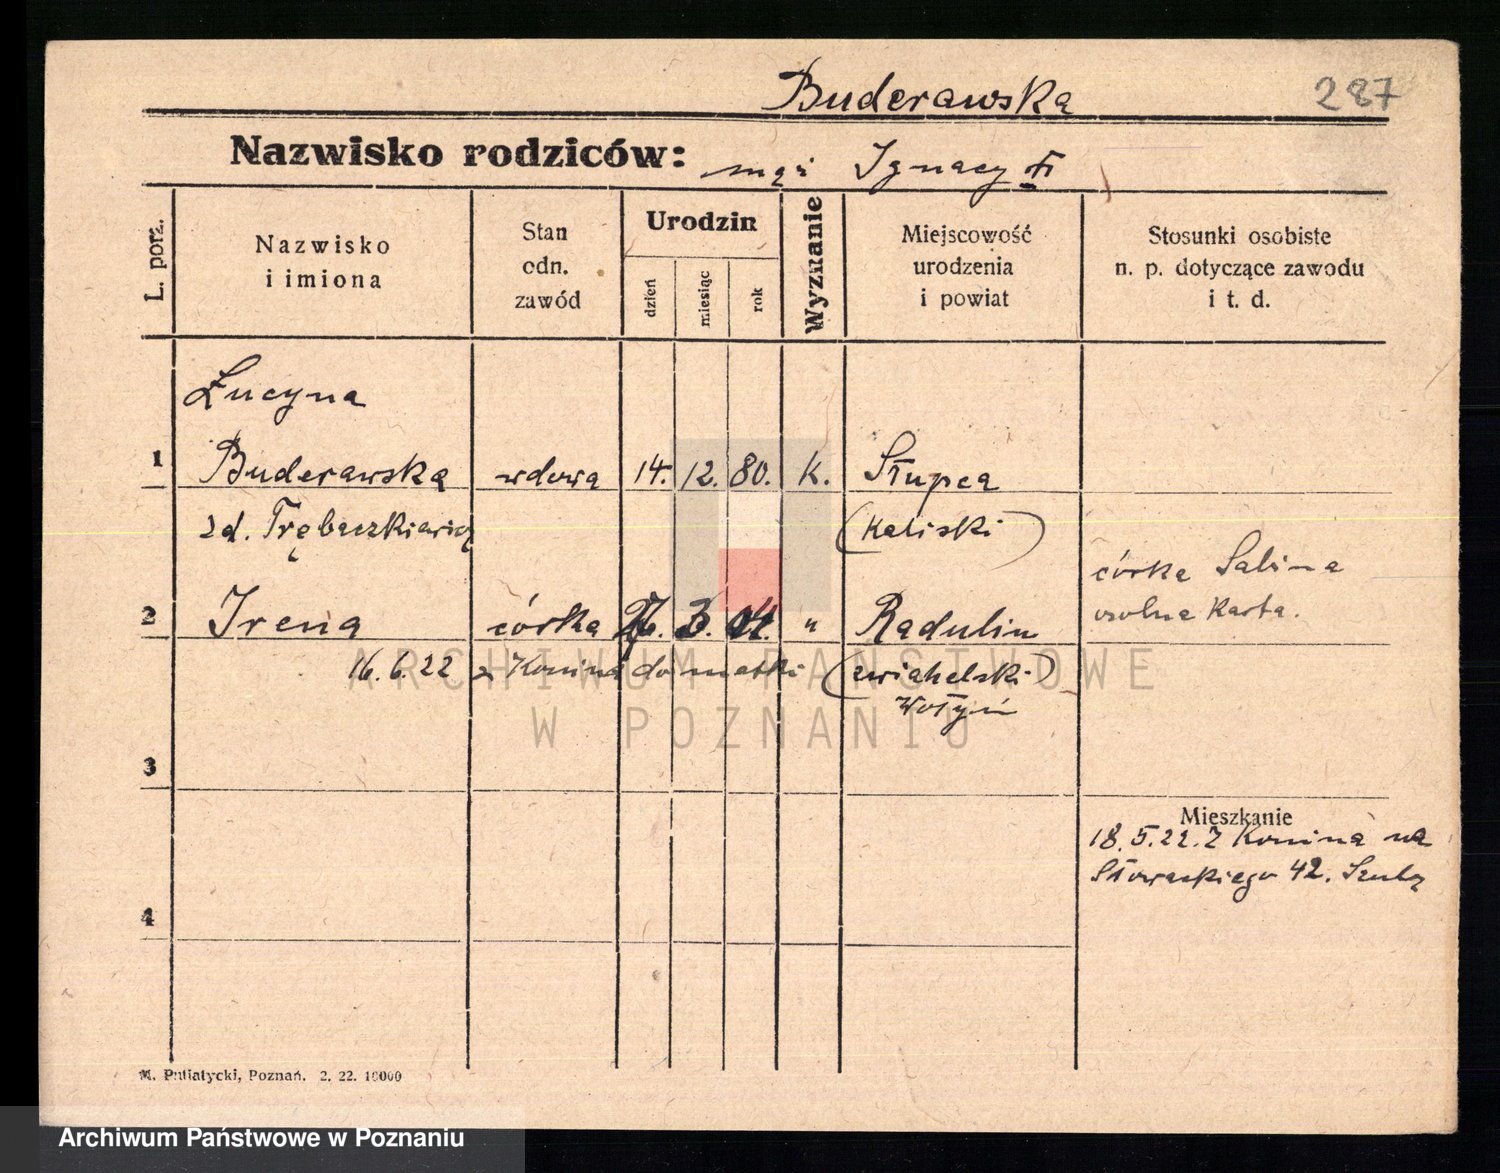 Buderawska 287
Nazwisko rodziców: mąż Ignacy
L. porz.
Nazwisko
i imiona
Stan
odn.
zawód
Urodzin
dzień
miesiąc
rok
Wyznanie
Miejscowość
urodzenia
i powiat
Stosunki osobiste
n. p. dotyczące zawodu
i t. d.
Łucyna
1 Buderawska wdowa 14. 12. 80. K. Słupca
zd. Trębaczkiewicz (Kaliski)
córka Sabina
osobna Karta.
2 Irena córka 27. 3. 04. " Radulin
16.6.22 z Konina do matki (zwiahelski)
Wołyń
3
Mieszkanie
18.5.22. Z Konina na
Słowackiego 42.
4
M. Putiatycki, Poznań. 2. 22. 10000
ARCHIWUM PAŃSTWOWE
W POZNANIU
Archiwum Państwowe w Poznaniu